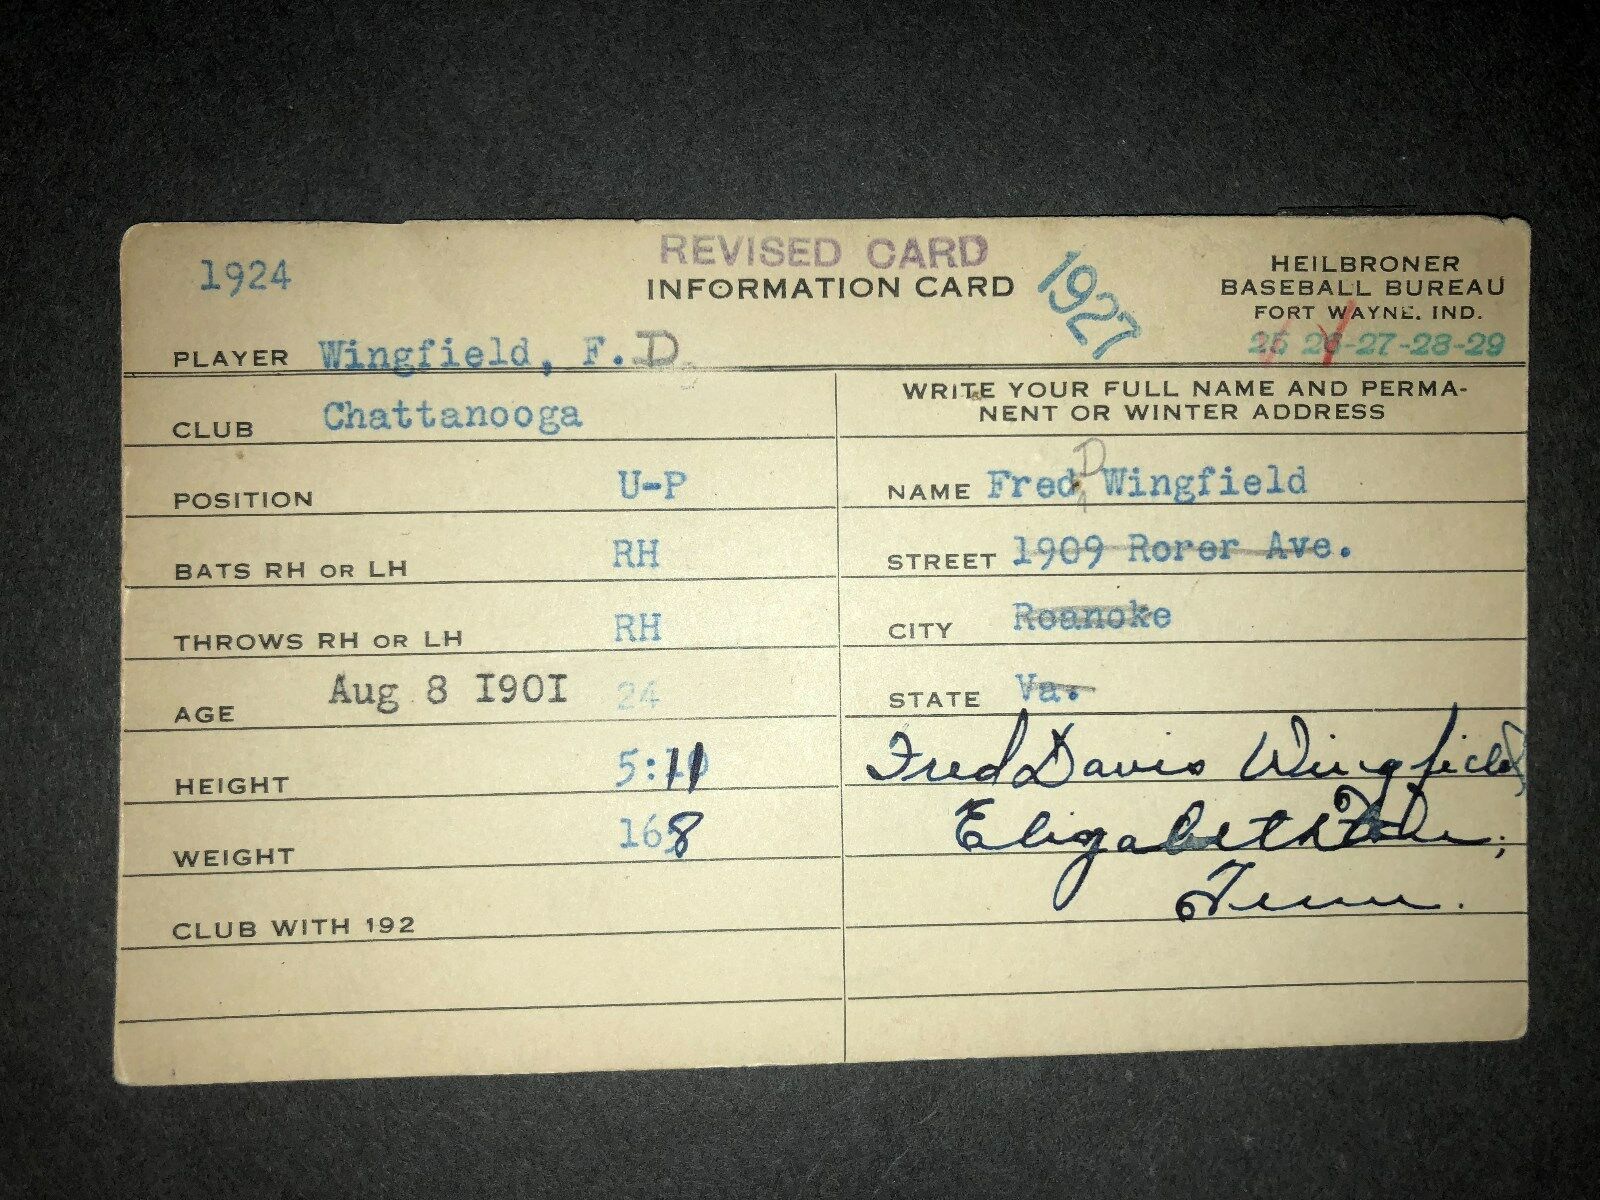 REVISED CARD
1924
INFORMATION CARD
1927
HEILBRONER
BASEBALL BUREAU
FORT WAYNE. IND.
25 26-27-28-29
PLAYER Wingfield, F. D.
CLUB Chattanooga
POSITION U-P
BATS RH OR LH RH
THROWS RH OR LH RH
AGE Aug 8 I90I 24
HEIGHT 5:11
WEIGHT 168
CLUB WITH 192
WRITE YOUR FULL NAME AND PERMA-
NENT OR WINTER ADDRESS
NAME Fred D Wingfield
STREET 1909 Rorer Ave.
CITY Roanoke
STATE Va.
Fred Davis Wingfield
Tenn.